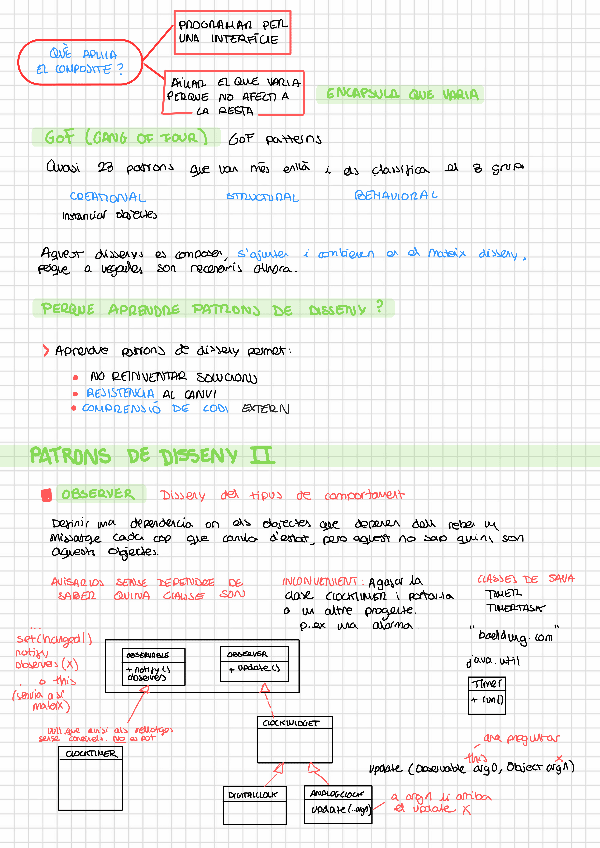 QUÈ APLICA
EL COMPOSITE?
PROGRAMAR PER
UNA INTERFÍCIE
AÏLLAR EL QUE VARIA
PERQUE NO AFECTI A
LA RESTA
ENCAPSULA QUE VARIA
GOF (GANG OF FOUR) GOF patterns
Quasi 23 patrons que van més enllà i els classifica el 3 grups
CREATIONAL
ESTRUCTURAL
BEHAVIORAL
Instanciar objectes
Aquest dissenys es composen, s'ajunten i combinen en el mateix disseny,
perque a vegades son necessaris alhora.
PERQUE APRENDRE PATRONS DE DISSENY?
Aprendre patrons de disseny permet:
NO REINVENTAR SOLUCIONS
RESISTENCIA AL CANVI
COMPRENSIÓ DE CODI EXTERN
PATRONS DE DISSENY II
OBSERVER Disseny del tipus de comportament
Definir una dependència on els objectes que depenen d'ell reben un
missatge cada cop que canvia d'estat, pero aquest no sap quins son
aquests objectes.
AVISARLOS SENSE DEPENDRE DE
SABER QUINA CLASSE SON
INCONVENIENT: Agafar la
classe CLOCKTIMER i portar-la
a un altre projecte.
p.ex una alarma
CLASSES DE JAVA
TIMER
TIMERTASK
"baeldung.com"
java.util
Timer
+ run()
...
setChanged()
notify
observers(x)
o this
(s'envia a si
mateix)
OBSERVABLE
+ notify()
observers
OBSERVER
+ update()
vull que avisi als rellotges
sense coneixe'ls. NO es pot
CLOCKTIMER
CLOCKWIDGET
DIGITALCLOCK
ANALOGCLOCK
update(..arg1)
una preguntar
this
x
update (Observable arg0, Object arg1)
a arg1 li arriba
el update x